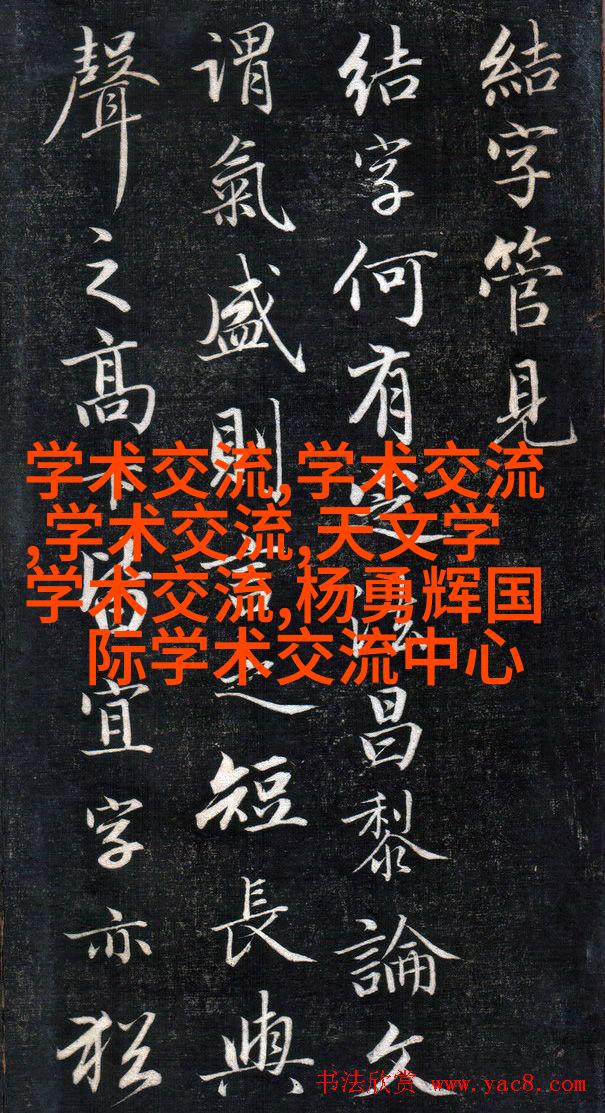 結字管見
结字何有定法昌黎論文
謂氣盛則言之短長與
聲之高下皆宜字亦猶
学术交流,学术交流
,学术交流,天文学
学术交流,杨勇辉国
际学术交流中心
书法欣赏 www.yac8.com